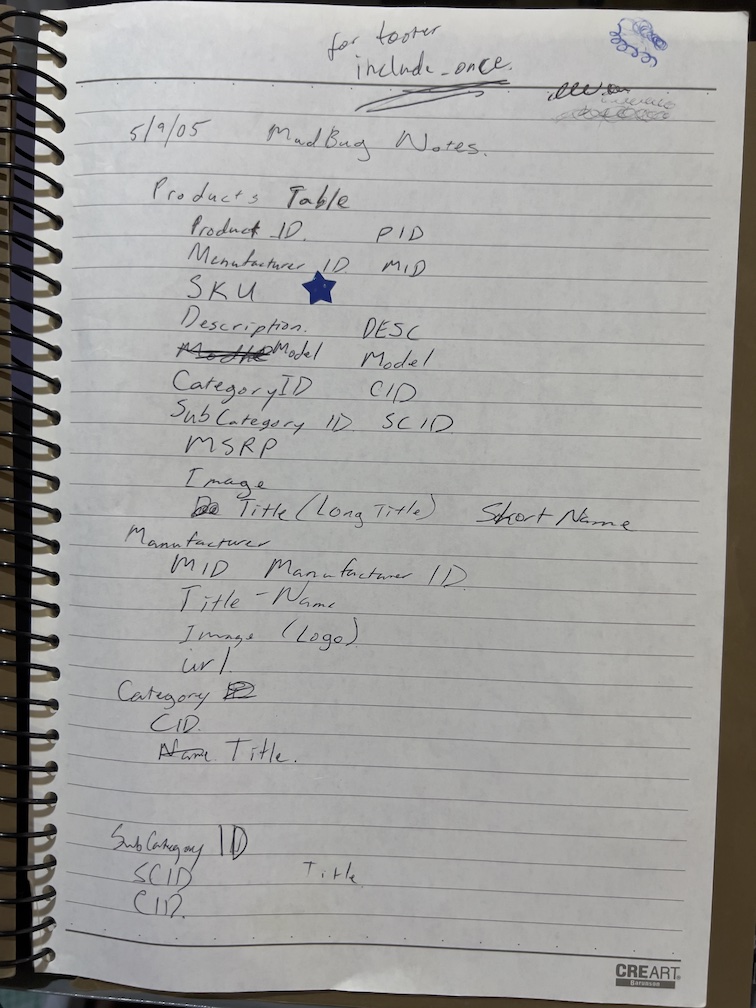 for footer
include_once.
5/9/05 MadBug Notes.
Products Table
Product ID. PID
Manufacturer ID MID
SKU
Description. DESC
Model Model
CategoryID CID
SubCategory ID SCID
MSRP
Image
Title (Long Title) Short Name
Manufacturer
MID Manufacturer ID
Title - Name
Image (Logo)
url
Category
CID
Name Title.
SubCategory ID
SCID Title
CID.
CREART